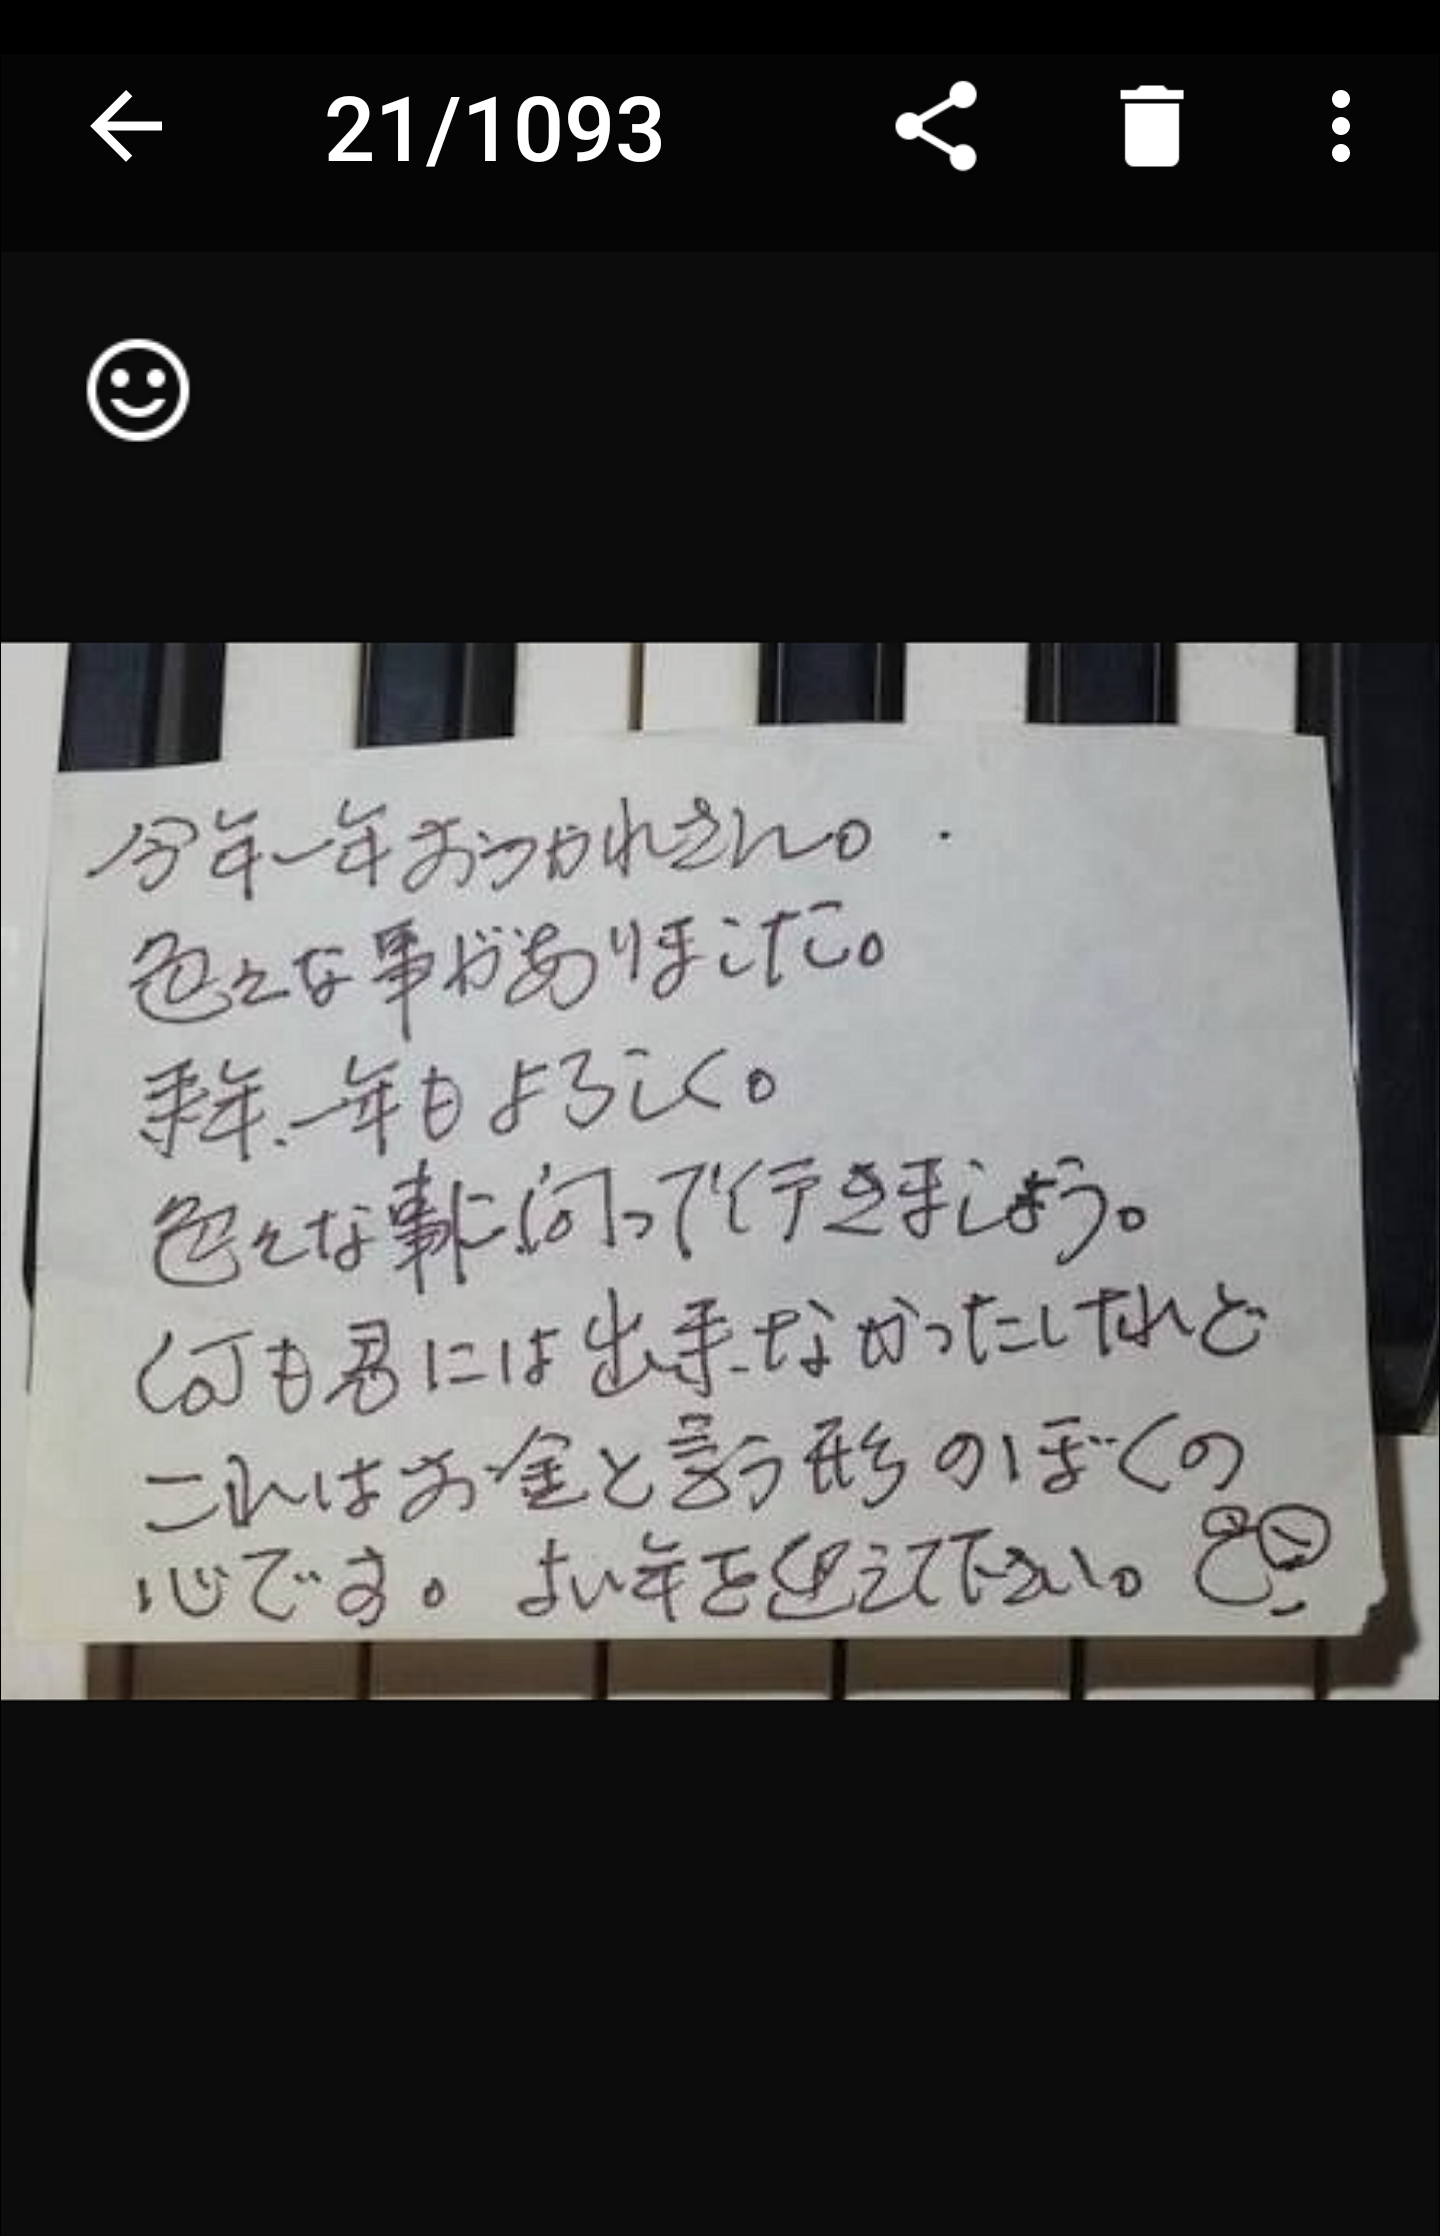 21/1093
今年一年おつかれさん。
色々な事がありました。
来年一年もよろしく。
色々な事に向って行きましょう。
何も君には出来なかったけれど
これはお金と言う形のぼくの
心です。よい年を迎えて下さい。